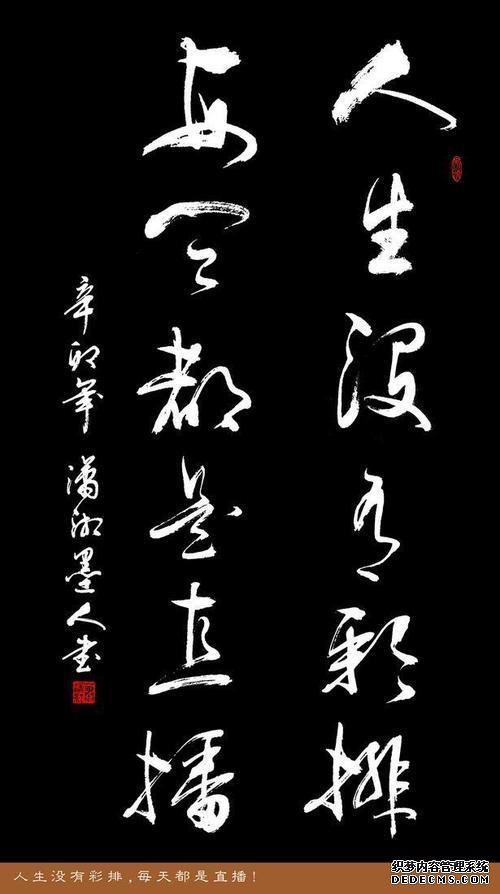 人生没有彩排
每天都是直播
辛卯年 潇湘墨人书
人生没有彩排,每天都是直播!
织梦内容管理系统
DEDECMS.COM